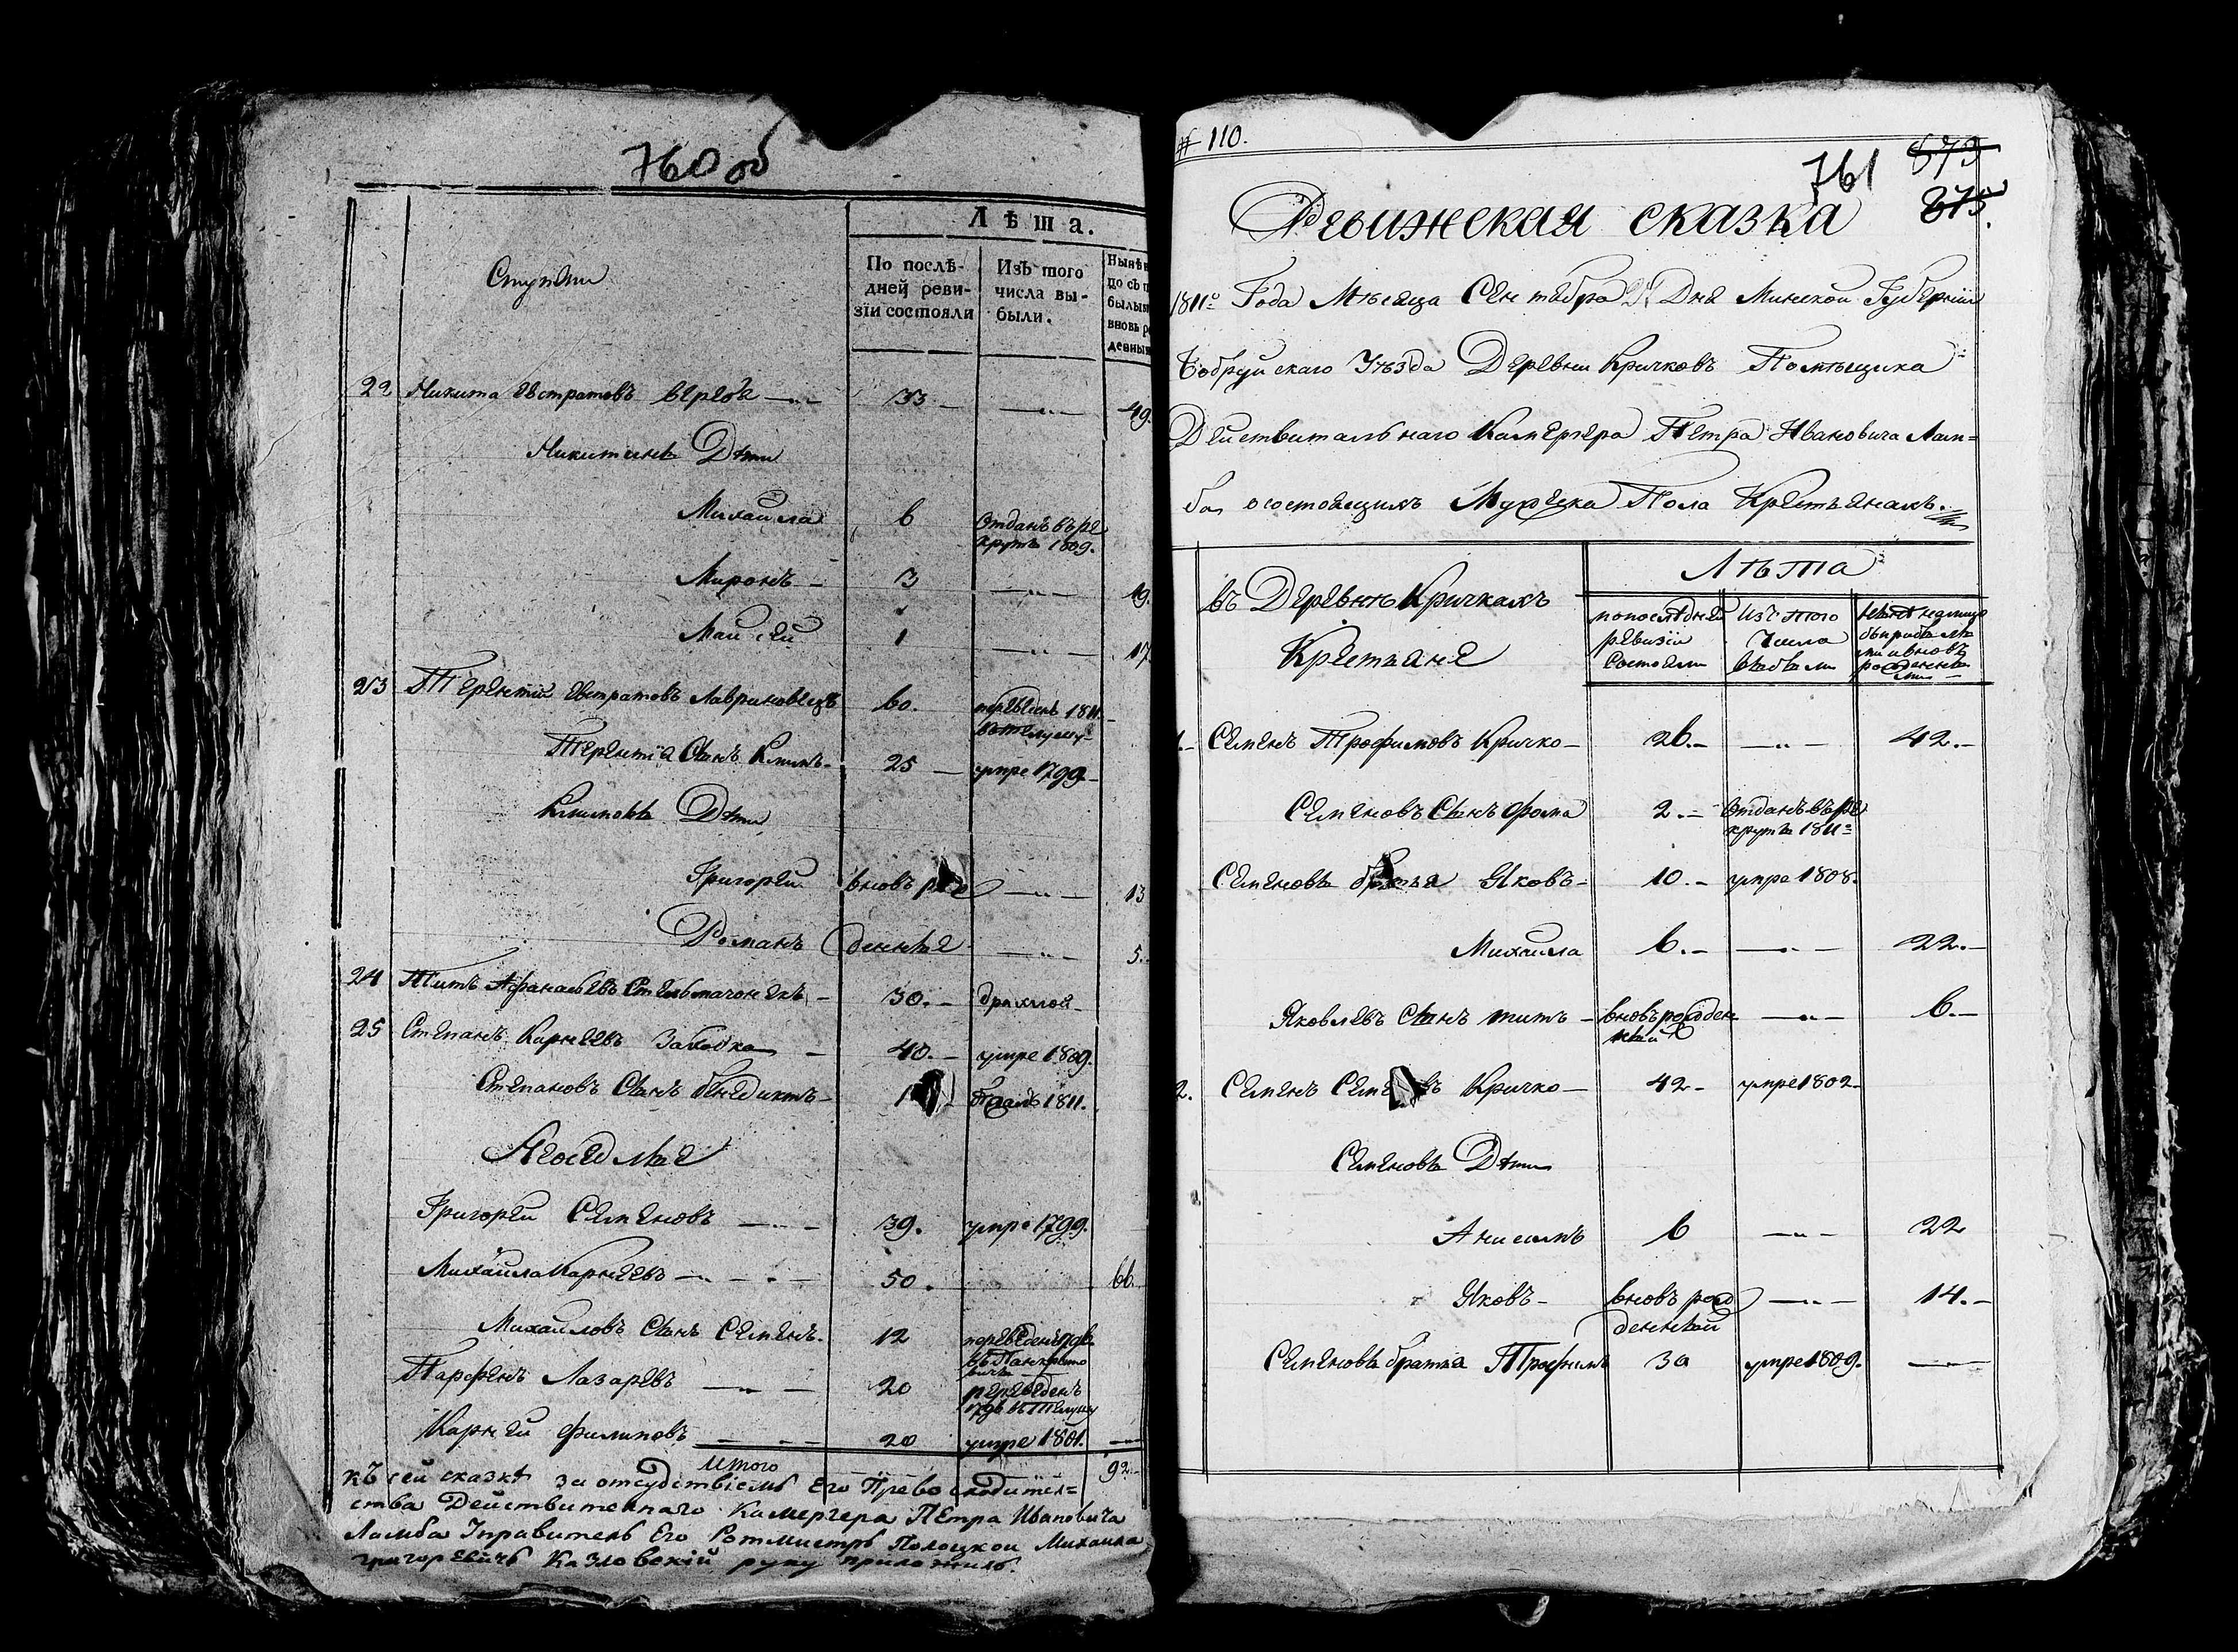 760 об
Лѣта.
Ступени
По послѣ-
дней реви-
зіи состояли
Изъ того
числа вы-
были.
22 Никита Евстратовъ верева — 33 — — 49.
Никитины Дѣти
Михайла 6 Отданъ въ ре
круты 1809.
Миронъ — 3 — 19.
Майсей 1 — 17
23 Терентій Евстратовъ Лавриновецъ 60. переведенъ 1811.
Терентія Сынъ Климъ — 25 — умре 1799 —
Климовы Дѣти
Григорей вновь рож — 13
Романъ денные — 5.
24 Титъ Афанасьевъ — 30. — дряхлой —
25 Степанъ Карнеевъ — 40. — умре 1809.
Степановъ Сынъ бенедиктъ — 1 1811.
Неоседлые
Григорей Семеновъ — 39. умре 1799.
Михайла Карнеевъ — 50. 66.
Михайловъ Сынъ Семенъ. 12
Парфенъ Лазаревъ — 20 переведенъ
Карней Филиповъ — 20 умре 1801. —
Итого 92
Къ сей сказкѣ за отсудствіемъ Его Превосходител=
ства Действителнаго Камергера Петра Ивановича
Ламба Управитель Его Ротмистръ Полоцкои Михаила
Григоревичъ Казловскій руку приложилъ.
# 110.
761 873
875.
Ревижская сказка
1811го Года Месеца Сентебра Дня Минской Губерніи
Бобруйскаго Уѣзда Деревни Кричковъ Помѣщика
Действитальнаго Камергера Петра Ивановича Лам=
ба осостоящихъ Мужеска Пола Крестьянахъ.
въ Деревнѣ Кричкахъ
Крестьяне
Лѣта
попоследней
ревизіи
Состояли
Изъ того
Числа
выбыли
1. — Семенъ Трофимовъ Кричко — 26. — — 42. —
Семеновъ Сынъ Фома 2. — Отданъ въ ре
круты 1811го
Семеновы братья Яковъ — 10. — умре 1808.
Михайла 6. — — 22. —
Яковлевъ Сынъ титъ — вновь рожден — 6. —
ный
2. Семенъ Семеновъ Кричко — 42 — умре 1802 —
Семеновы Дѣти
Анисимъ 6 — 22
Яковъ — вновь рож — 14. —
денный
Семеновы братья Трофимъ 30 умре 1809. —